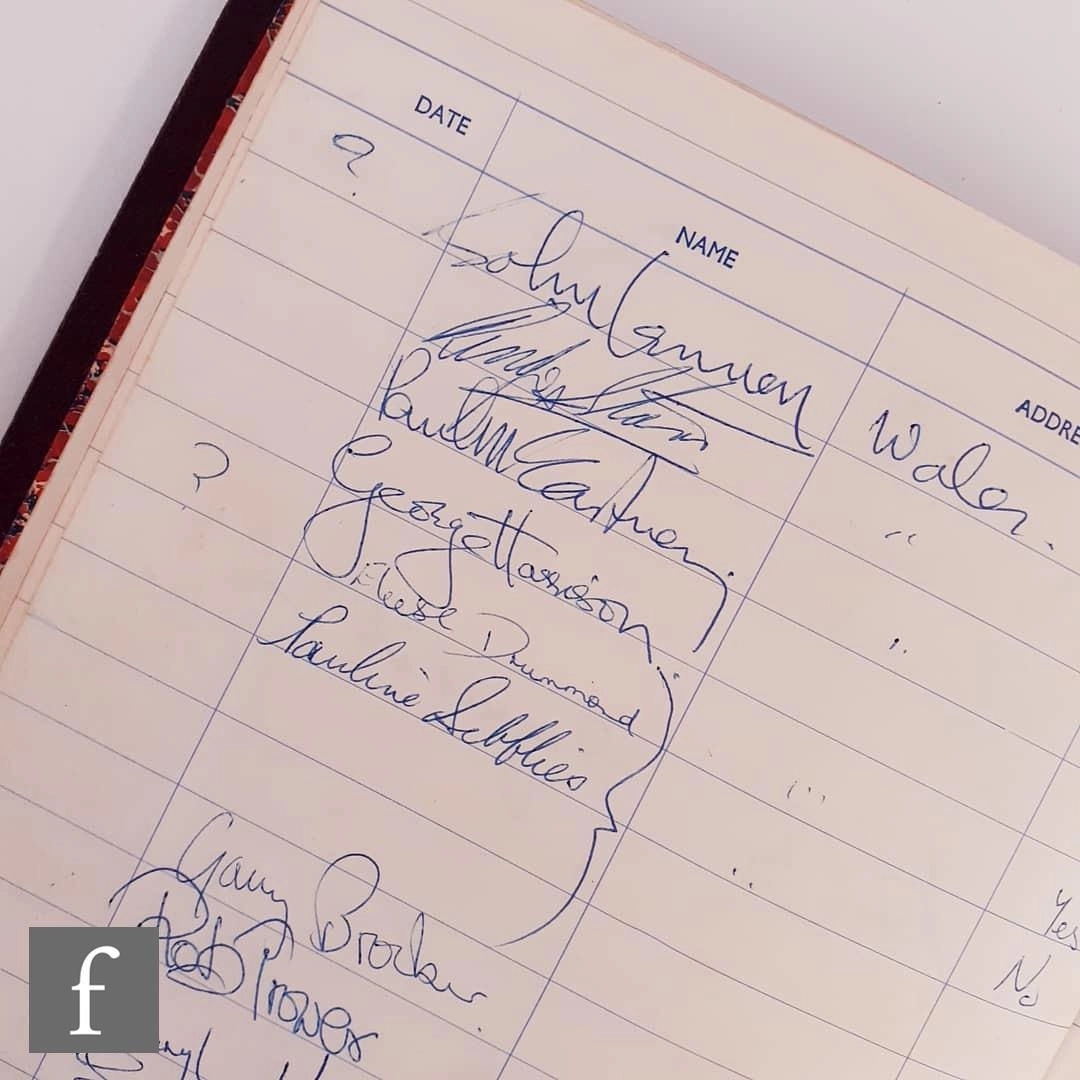 DATE NAME ADDRE
?
John Lennon Wales.
Ringo Starr "
Paul McCartney "
? George Harrison
Drummond "
Pauline "
Yes
Gary Brooker. No
Rob Trower
f